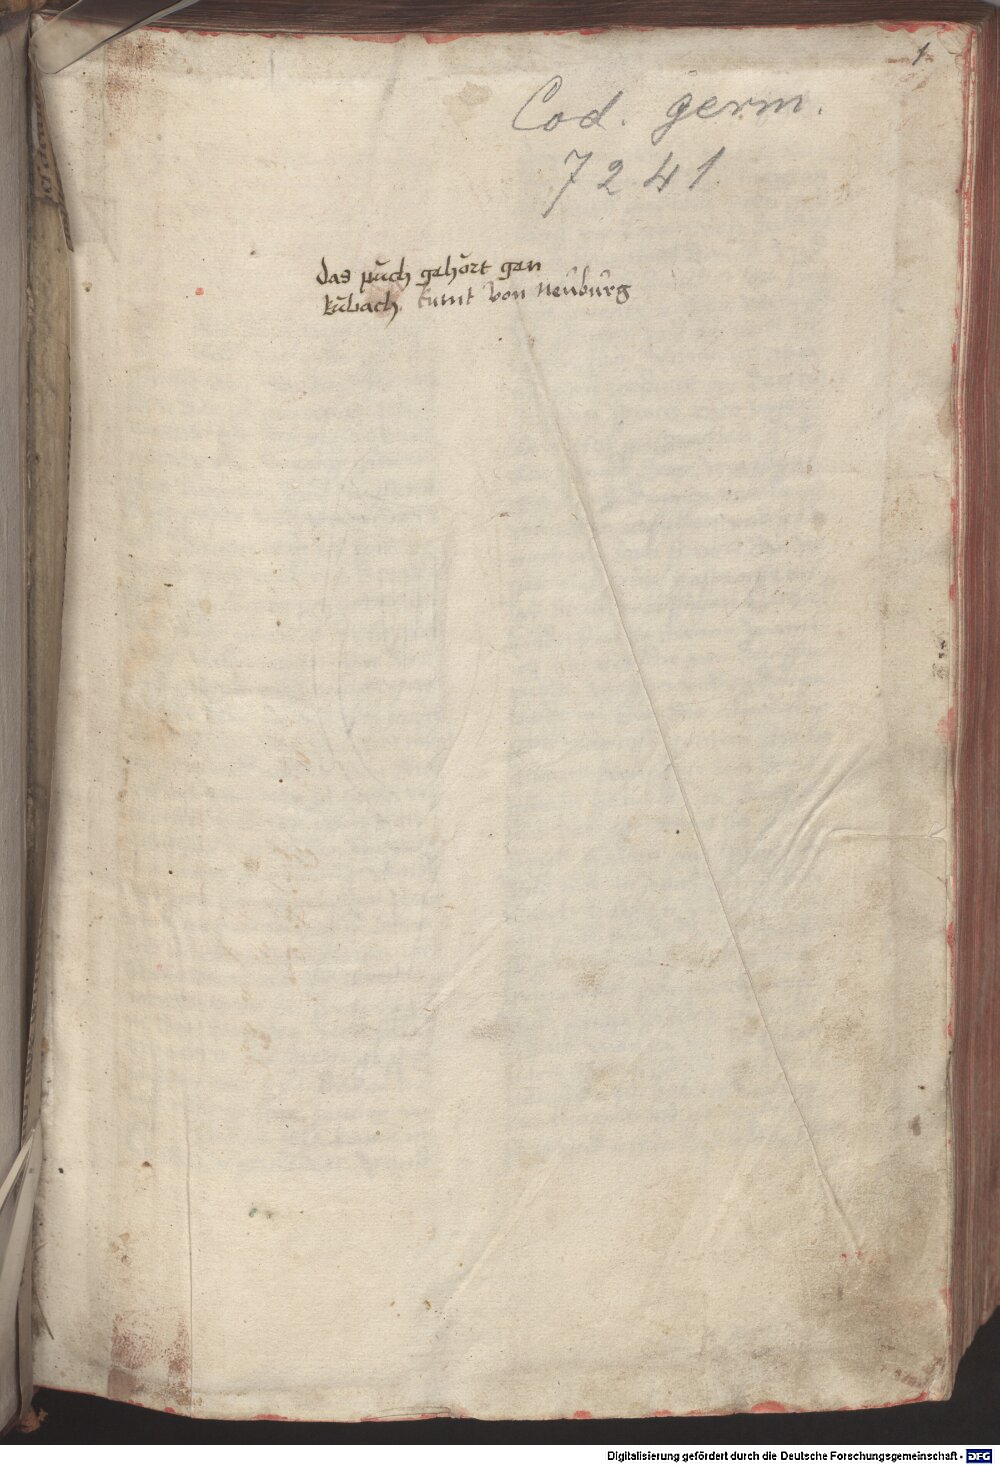 1
Cod. germ.
7241
das pŭch gehört gen
kŭbach kumt von Neŭbŭrg
Digitalisierung gefördert durch die Deutsche Forschungsgemeinschaft - DFG